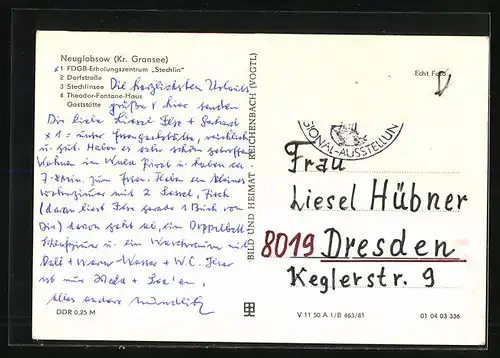 Neuglobsow (Kr. Gransee)
x1 FDGB-Erholungszentrum „Stechlin"
2 Dorfstraße
3 Stechlinsee
4 Theodor-Fontane-Haus
Gaststätte
Die herzlichsten Urlaubs
grüße v hier senden
Dir liebe Liesel Ilse +
x 1 = unser
u. gut. Haben es sehr schön getroffen
Wohnen im Wald u. haben ca.
7-8 Min. zum Haben ein kleines
Wohnzimmer mit 2 Sessel, Tisch
(daran liest Ilse gerade 1 Buch von
Dir) davon geht ab, ein Doppelbett
Schlafzimm u. ein Waschraum mit
Kalt + Warm Wasser + W.C.
Alles andere mündlich
DDR 0,25 M
BILD UND HEIMAT · REICHENBACH (VOGTL)
Echt Foto
GIONAL-AUSSTELLUN
Frau
Liesel Hübner
8019 Dresden
Keglerstr. 9
V 11 50 A 1/B 463/81
01 04 03 336